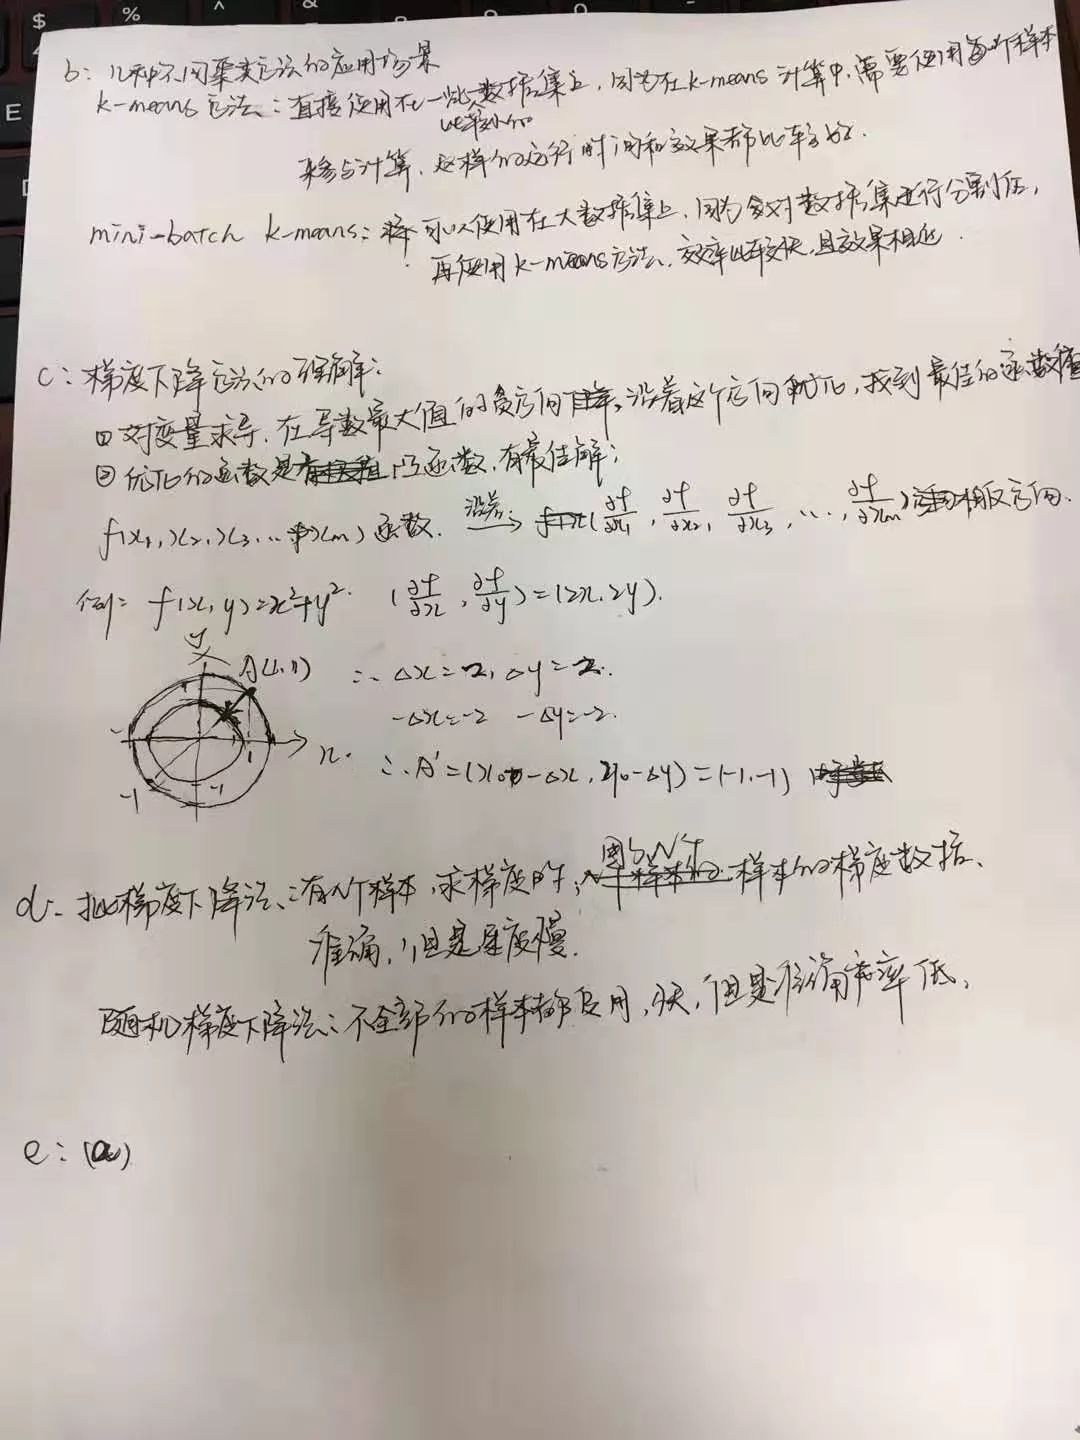 b: 几种不同聚类方法的应用场景
k-means方法: 直接使用在一些数据集上, 因为在k-means计算中, 需要使用每个样本
比较小的
来参与计算, 这样的运行时间和效果都比较好.
mini-batch k-means: 可以使用在大数据集上, 因为会对数据集进行分割后,
再使用k-means方法, 效率比较快, 且效果相近.
c: 梯度下降方法的理解:
① 对变量求导, 在导数最大值的负方向下降, 沿着这个方向优化, 找到最佳的函数值
② 优化的函数是凸函数, 有最佳解;
f(x1, x2, x3, … xm) 函数. 沿着: → (∂f/∂x1, ∂f/∂x2, ∂f/∂x3, …, ∂f/∂xm) 相反方向.
例: f(x, y)=x²+y². (∂f/∂x, ∂f/∂y)=(2x, 2y).
y
A(1,1) ∴ Δx=2, Δy=2.
-Δx=-2 -Δy=-2.
1 x.
∴ A'=(x0-Δx, y0-Δy)=(-1,-1)
-1 -1
d. 批梯度下降法: 有N个样本, 求梯度时, 用N个样本的梯度数据、
准确, 但是速度慢.
随机梯度下降法: 不全部的样本都使用, 快, 但是准确率低,
e: (a)